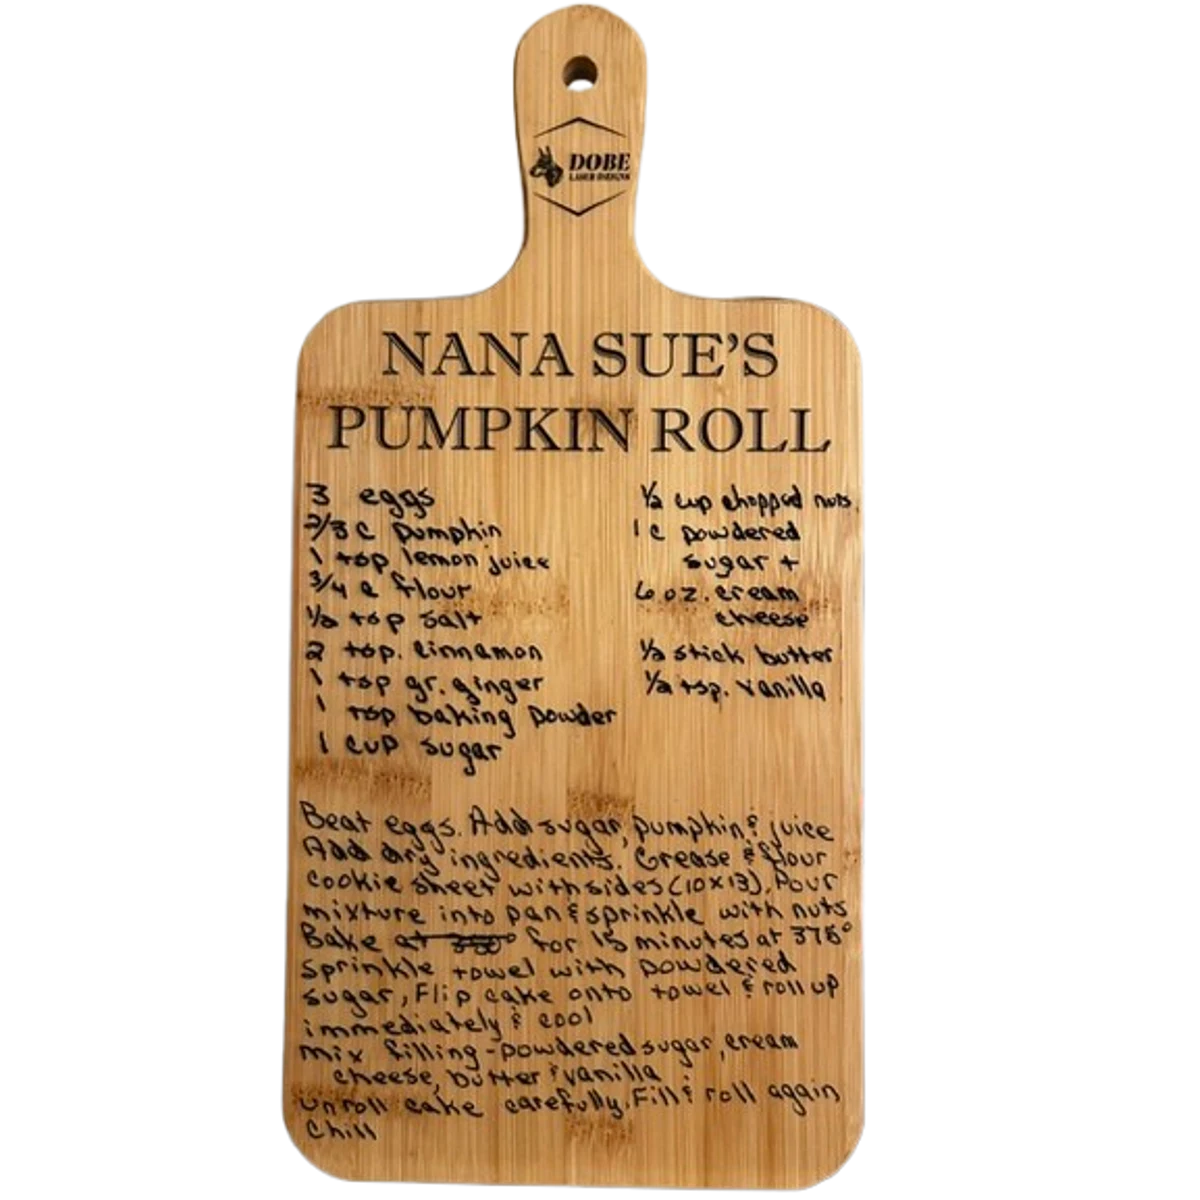 DOBE
LASER DESIGNS
NANA SUE'S
PUMPKIN ROLL
3 eggs
2/3 c pumpkin
1 tsp lemon juice
3/4 c flour
1/2 tsp salt
2 tsp. cinnamon
1 tsp gr. ginger
1 tsp baking powder
1 cup sugar
1/2 cup chopped nuts
1 c powdered
sugar +
6 oz. cream
cheese
1/2 stick butter
1/2 tsp. vanilla
Beat eggs. Add sugar, pumpkin & juice
Add dry ingredients. Grease & flour
cookie sheet with sides (10x13). Pour
mixture into pan & sprinkle with nuts
Bake at 350° for 15 minutes at 375°
Sprinkle towel with powdered
sugar, Flip cake onto towel & roll up
immediately & cool
Mix filling - powdered sugar, cream
cheese, butter & vanilla
Unroll cake carefully. Fill & roll again
Chill